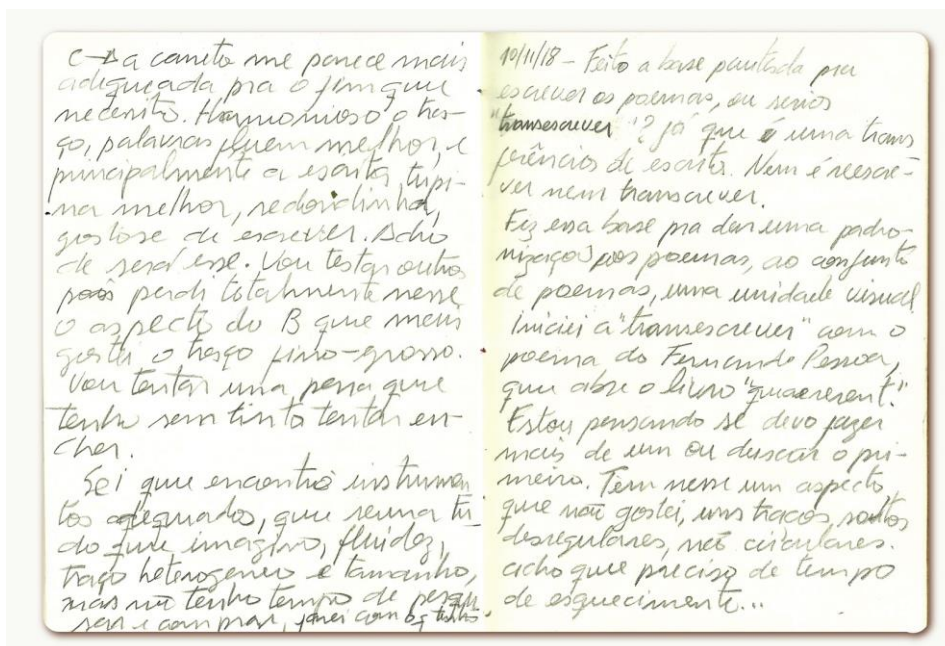 C → a caneta me parece mais
adequada pra o fim que
necesito. Harmonioso o tra-
ço, palavras fluem melhor, e
principalmente a escrita, tupi-
na melhor, redondinha,
gostose de escrever. Acho
de será esse. Vou testar outra
pois perdi totalmente nesse
o aspecto do B que mais
gostei o traço fino-grosso.
Vou tentar uma pena que
tenho sem tinta tentar en-
cher.
Sei que encontro instrumen
tos adequados, que reuna tu
do que imagino, fluidez,
traço heterogeneo e tamanho,
mas não tenho tempo de pesqui
sar e comprar, com
10/11/18 - Feito a base pautada pra
escrever os poemas, ou seria
"transescrever"? já que é uma trans
ferência de escrita. Nem é reescre-
ver nem transcrever.
Fiz essa base pra dar uma padro-
nização aos poemas, ao conjunto
de poemas, uma unidade visual.
Iniciei a "transescrever" com o
poema do Fernando Pessoa,
que abre o livro "quaererent."
Estou pensando se devo fazer
mais de um ou descar o pri-
meiro. Tem nesse um aspecto
que não gostei, uns traços, soltos
desregulares, não circulares.
acho que preciso de tempo
de esquecimento...